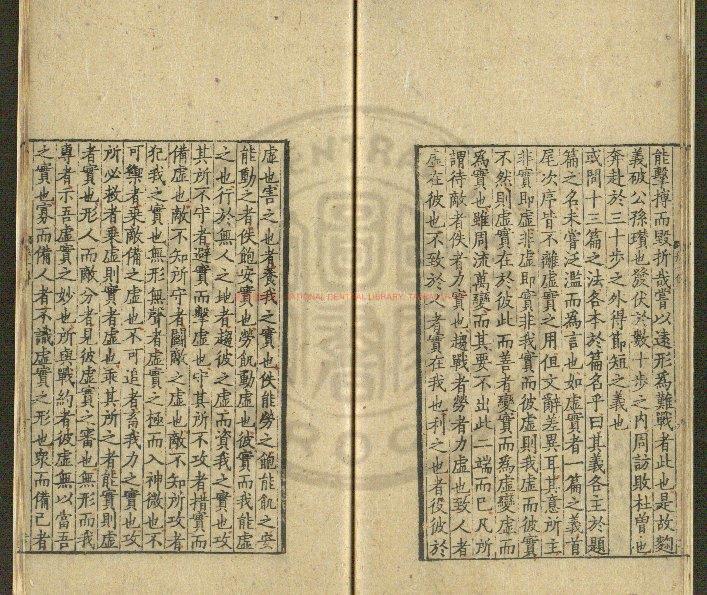 能擊搏而毀折哉嘗以遠形為難戰者此也是故麴
義破公孫瓚也發伏於數十步之内周訪敗杜曾也
奔赴於三十步之外得節短之義也
或問十三篇之法各本於篇名乎曰其義各主於題
篇之名未嘗泛濫而為言也如虛實者一篇之義首
尾次序皆不離虛實之用但文辭差異耳其意所主
非實即虛非虛即實非我實而彼虛則我虛而彼實
不然則虛實在於彼此而善者變實而為虛變虛而
為實也雖周流萬變而其要不出此二端而已凡所
謂待敵者佚者力實也趨戰者勞者力虛也致人者
虛在彼也不致於人者實在我也利之也者役彼於
虛也害之也者養我之實也佚能勞之飽能飢之安
能動之者佚飽安實也勞飢動虛也彼實而我能虛
之也行於無人之地者趨彼之虛而資我之實也攻
其所不守者避實而擊虛也守其所不攻者措實而
備虛也敵不知所守者鬬敵之虛也敵不知所攻者
犯我之實也無形無聲者虛實之極而入神微也不
可禦者乘敵備之虛也不可追者畜我力之實也攻
所必救者乘虛則實者虛也乖其所之者能實則虛
者實也形人而敵分者見彼虛實之審也無形而我
專者示吾虛實之妙也所與戰約者彼虛無以當吾
之實也寡而備人者不識虛實之形也衆而備己者